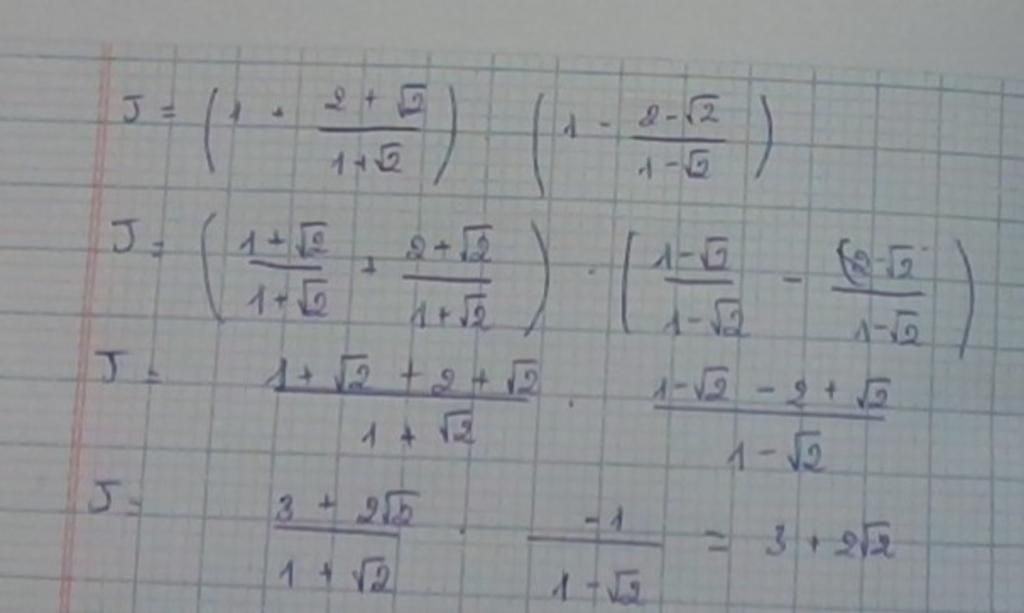 J = (1 + (2 + √2)/(1 + √2)) (1 - (2 - √2)/(1 - √2))
J = ((1 + √2)/(1 + √2) + (2 + √2)/(1 + √2)) · ((1 - √2)/(1 - √2) - (2 - √2)/(1 - √2))
J = (1 + √2 + 2 + √2)/(1 + √2) · (1 - √2 - 2 + √2)/(1 - √2)
J = (3 + 2√2)/(1 + √2) · (-1)/(1 - √2) = 3 + 2√2